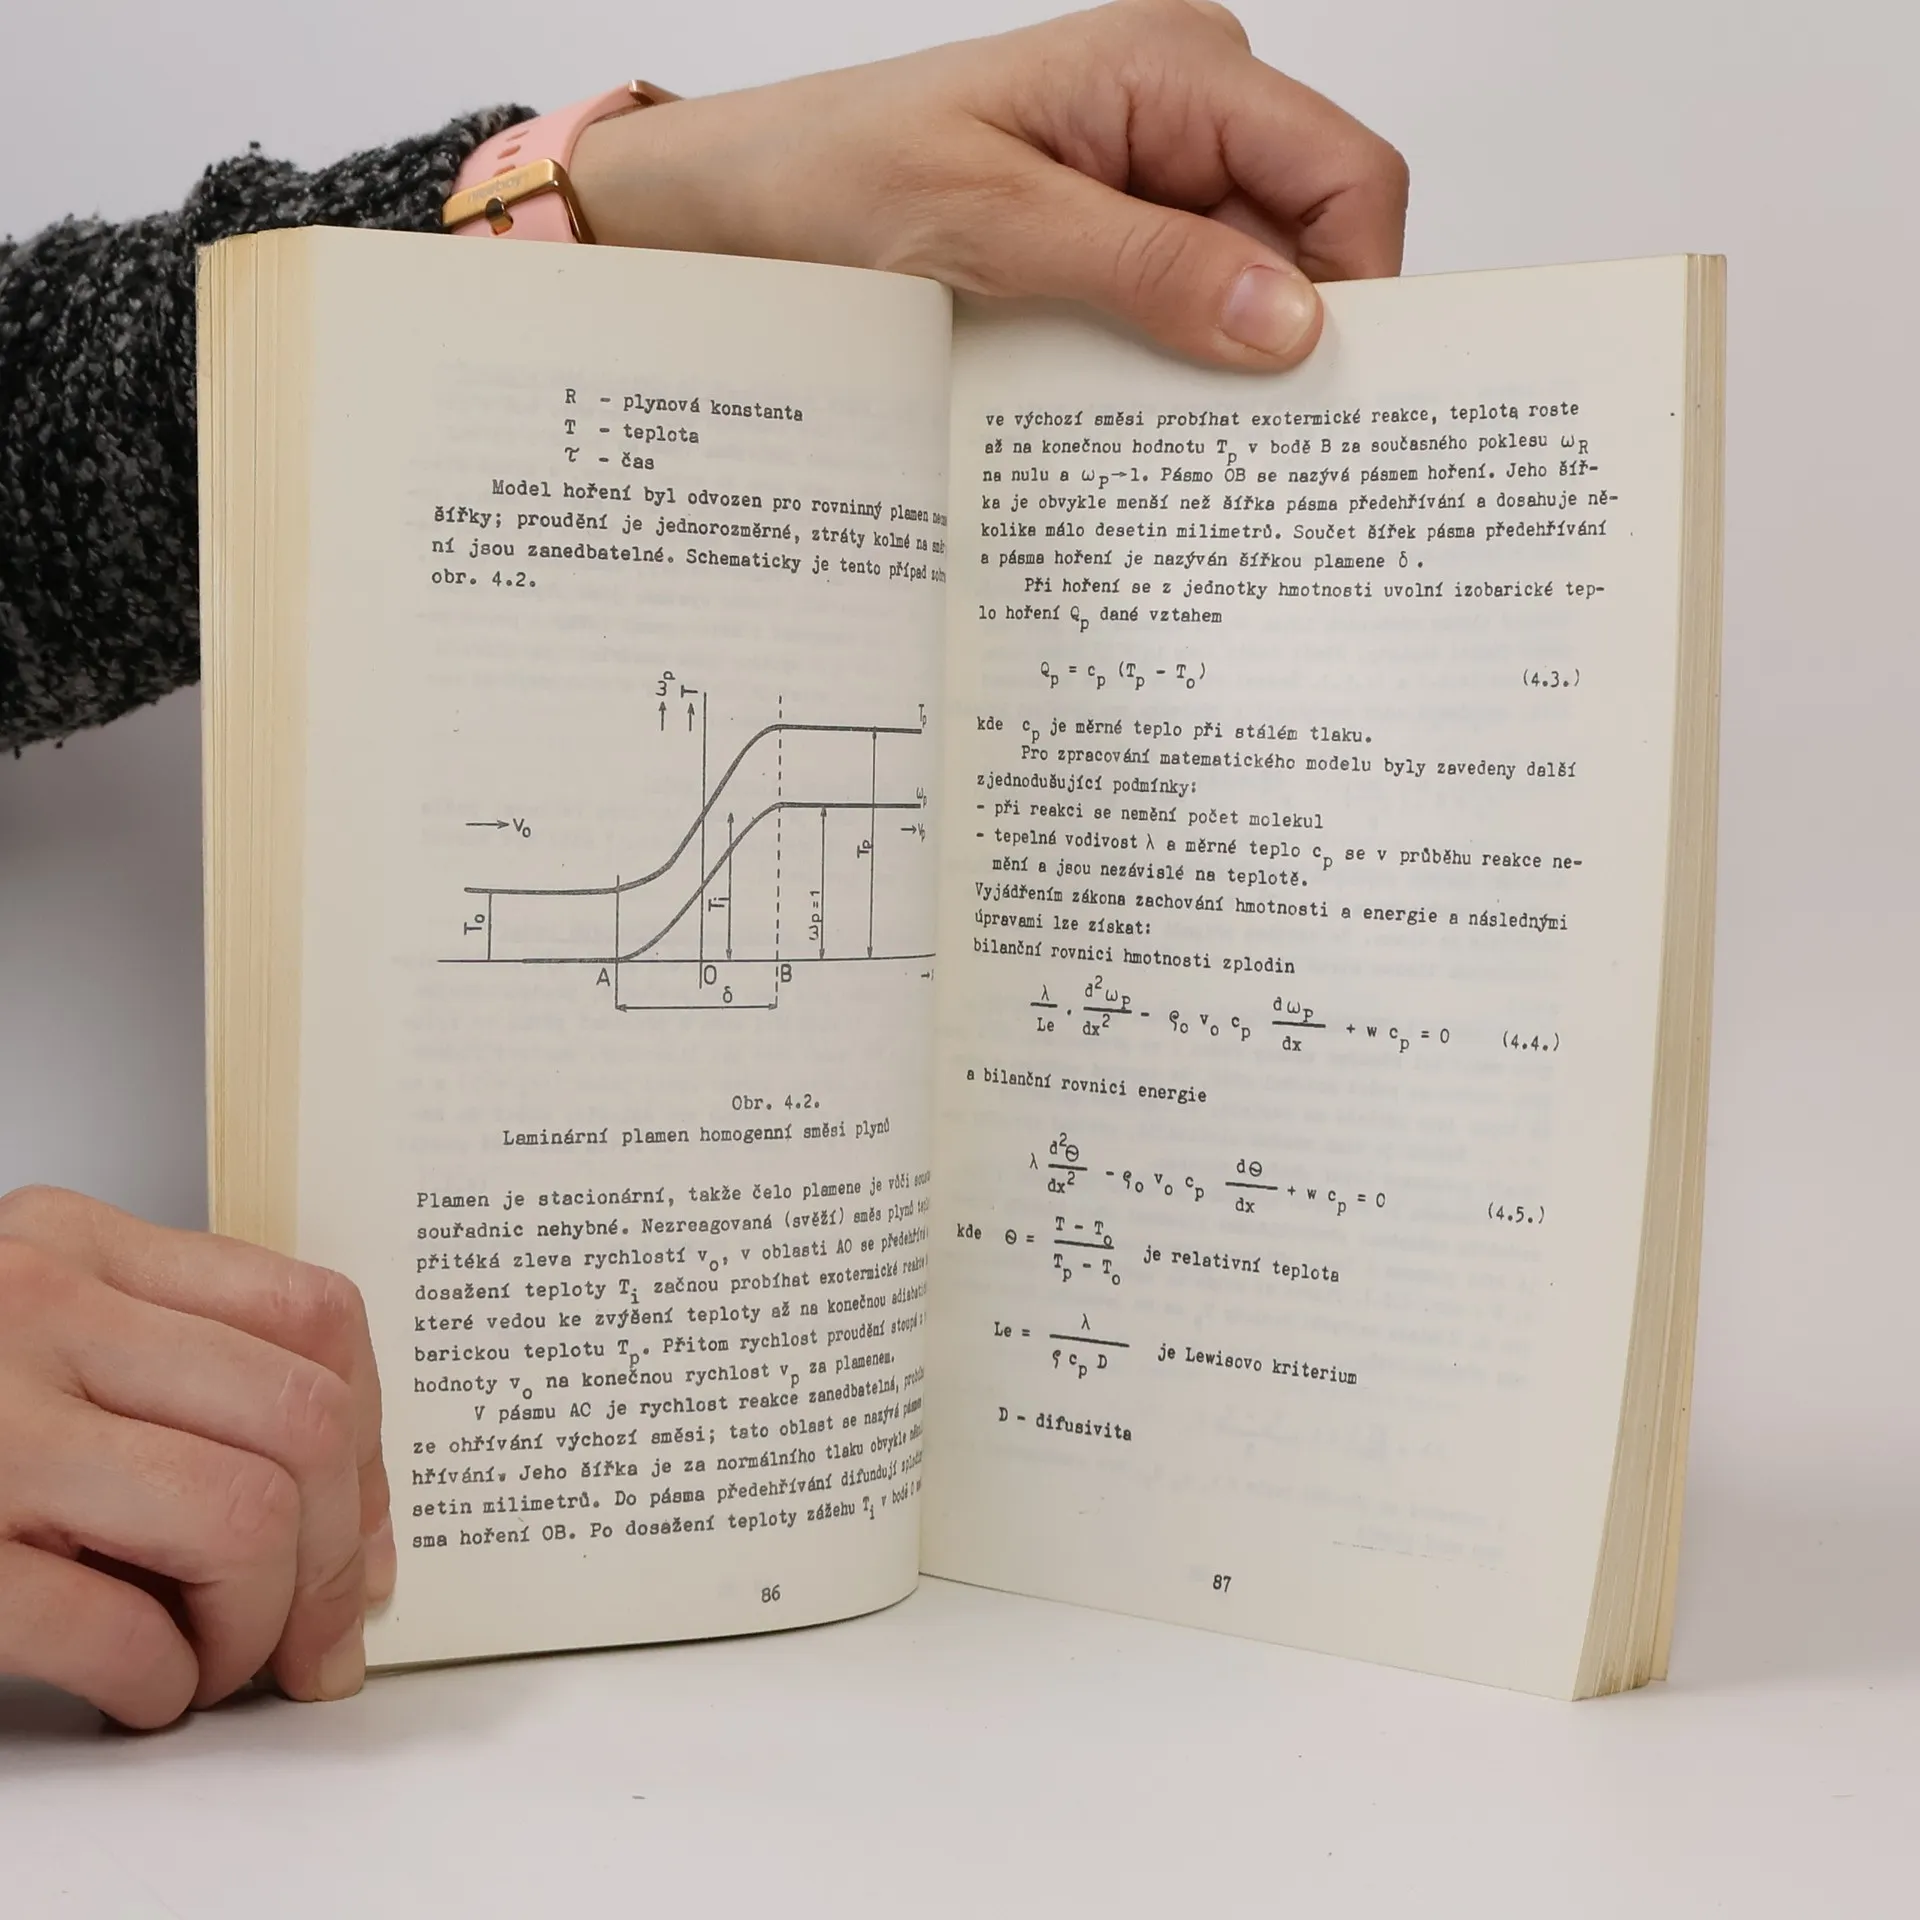 R - plynová konstanta
T - teplota
τ - čas
Model hoření byl odvozen pro rovinný plamen
šířky; proudění je jednorozměrné, ztráty kolmé na
ní jsou zanedbatelné. Schematicky je tento případ
obr. 4.2.
ωp T
Tp
ωp
→ Vo
→ Vp
To
Ti
ωp=1
Tp
A O B
δ
Obr. 4.2.
Laminární plamen homogenní směsi plynů
Plamen je stacionární, takže čelo plamene je vůči
souřadnic nehybné. Nezreagovaná (svěží) směs plynů
přitéká zleva rychlostí v_o, v oblasti AO se
dosažení teploty T_i začnou probíhat exotermické
které vedou ke zvýšení teploty až na konečnou
barickou teplotu T_p. Přitom rychlost proudění stoupá z
hodnoty v_o na konečnou rychlost v_p za plamenem.
V pásmu AC je rychlost reakce zanedbatelná,
ze ohřívání výchozí směsi; tato oblast se nazývá
hřívání. Jeho šířka je za normálního tlaku obvykle
setin milimetrů. Do pásma předehřívání difundují
sma hoření OB. Po dosažení teploty zážehu T_i v bodě O
86
ve výchozí směsi probíhat exotermické reakce, teplota roste
až na konečnou hodnotu T_p v bodě B za současného poklesu ω_R
na nulu a ω_p→1. Pásmo OB se nazývá pásmem hoření. Jeho šíř-
ka je obvykle menší než šířka pásma předehřívání a dosahuje ně-
kolika málo desetin milimetrů. Součet šířek pásma předehřívání
a pásma hoření je nazýván šířkou plamene δ.
Při hoření se z jednotky hmotnosti uvolní izobarické tep-
lo hoření Q_p dané vztahem
Q_p = c_p (T_p - T_o) (4.3.)
kde c_p je měrné teplo při stálém tlaku.
Pro zpracování matematického modelu byly zavedeny další
zjednodušující podmínky:
- při reakci se nemění počet molekul
- tepelná vodivost λ a měrné teplo c_p se v průběhu reakce ne-
mění a jsou nezávislé na teplotě.
Vyjádřením zákona zachování hmotnosti a energie a následnými
úpravami lze získat:
bilanční rovnici hmotnosti zplodin
λ/Le . d²ω_p/dx² - ρ_o v_o c_p dω_p/dx + w c_p = 0 (4.4.)
a bilanční rovnici energie
λ d²Θ/dx² - ρ_o v_o c_p dΘ/dx + w c_p = 0 (4.5.)
kde Θ = (T - T_o)/(T_p - T_o) je relativní teplota
Le = λ/(ρ c_p D) je Lewisovo kriterium
D - difusivita
87